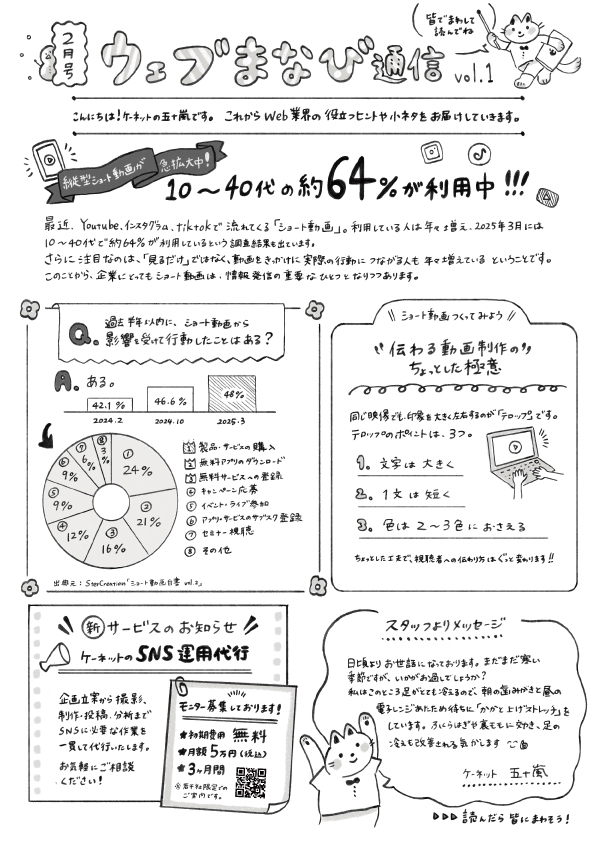 皆でまわして
読んでね
2月号
ウェブまなび通信 vol.1
こんにちは!ケーネットの五十嵐です。 これからWeb業界の役立つヒントや小ネタをお届けしていきます。
縦型ショート動画が 急拡大中!
10〜40代の約64%が利用中!!!
最近、Youtube、インスタグラム、tiktokで流れてくる「ショート動画」。利用している人は年々増え、2025年3月には
10〜40代で約64%が利用しているという調査結果も出ています。
さらに注目なのは、「見るだけ」ではなく、動画をきっかけに実際の行動につながる人も年々増えているということです。
このことから、企業にとってもショート動画は、情報発信の重要なひとつとなりつつあります。
Q. 過去半年以内に、ショート動画から
影響を受けて行動したことはある?
A. ある。
42.1% 46.6% 48%
2024.2 2024.10 2025.3
① 24%
② 21%
③ 16%
④ 12%
⑤ 9%
⑥ 9%
⑦ 6%
⑧ 3%
1 製品・サービスの購入
2 無料アプリのダウンロード
3 無料サービスへの登録
④ キャンペーン応募
⑤ イベント・ライブ参加
⑥ アプリ・サービスのサブスク登録
⑦ セミナー視聴
⑧ その他
出典元:StarCreation「ショート動画白書 vol.2」
ショート動画つくってみよう
伝わる動画制作の
ちょっとした極意
同じ映像でも、印象を大きく左右するのが「テロップ」です。
テロップのポイントは、3つ。
1. 文字は大きく
2. 1文は短く
3. 色は2〜3色におさえる
ちょっとした工夫で、視聴者への伝わり方はぐっと変わります!!
新サービスのお知らせ
ケーネットのSNS運用代行
企画立案から撮影、
制作・投稿、分析まで
SNSに必要な作業を
一貫して代行いたします。
お気軽にご相談
ください!
モニター募集しております!
★初期費用 無料
★月額5万円(税込)
★3ヶ月間
※若干社限定での
ご案内です。
スタッフよりメッセージ
日頃よりお世話になっております。まだまだ寒い
季節ですが、いかがお過ごしでしょうか?
私はこのところ足がとても冷えるので、朝の歯みがきと昼の
電子レンジあたため待ちに「かかと上げストレッチ」を
しています。ふくらはぎや裏ももに効き、足の
冷えも改善される気がします
ケーネット 五十嵐
▷▷▷ 読んだら皆にまわそう!